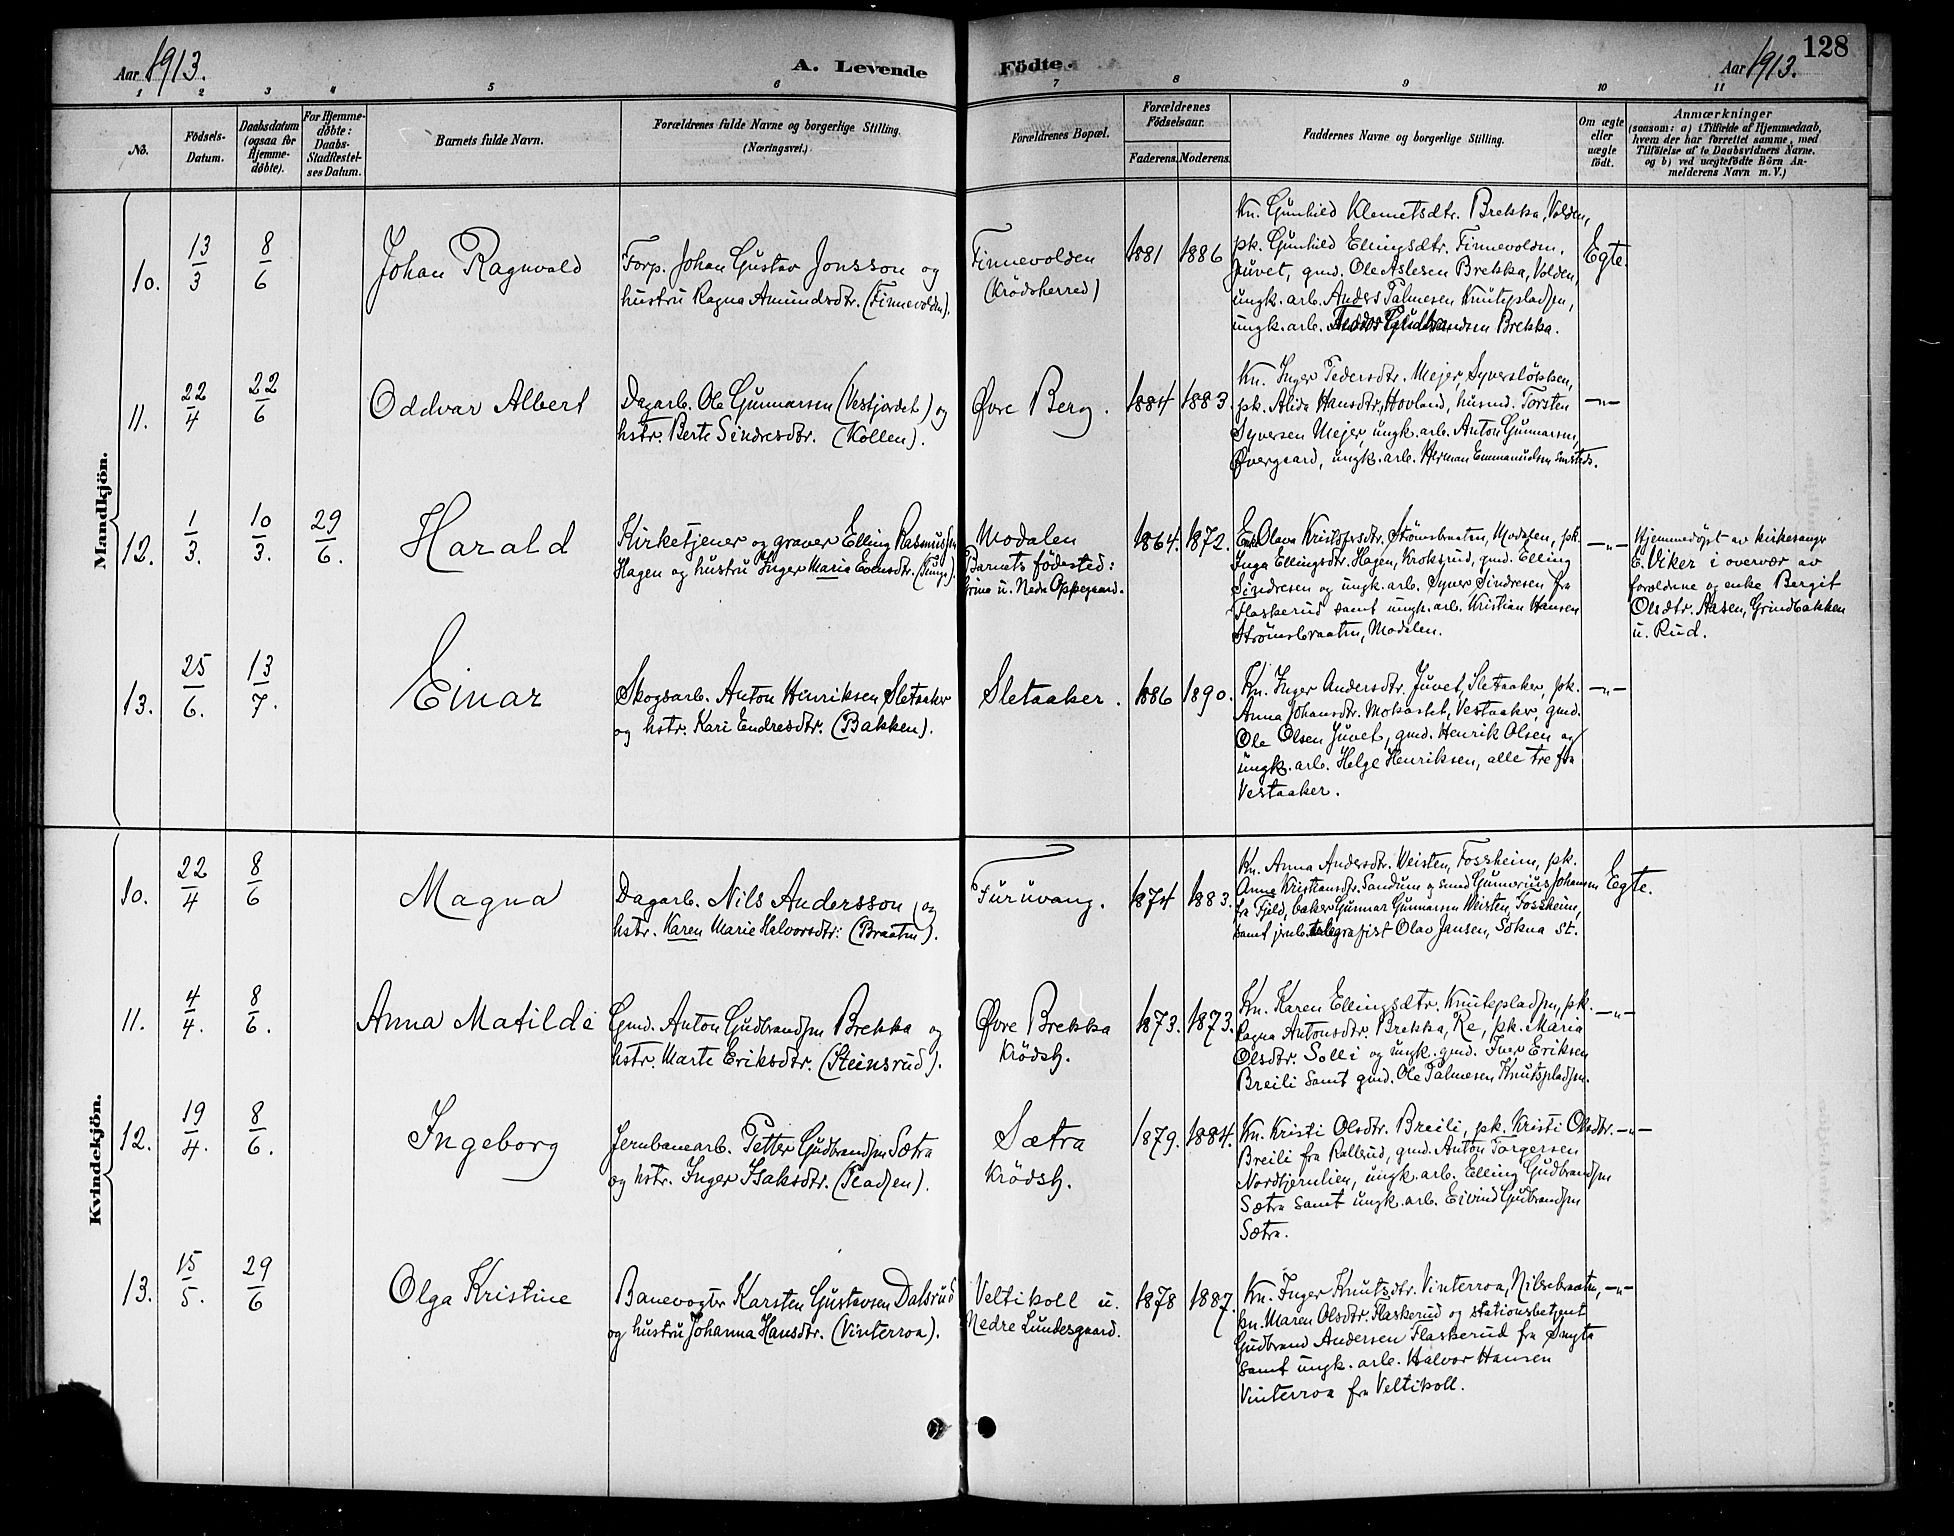 Aar 1913.
A. Levende
Födte.
Aar 1913.
128
1 2 3 4 5 6 7 8 9 10 11
No.
Födsels-
Datum.
Daabsdatum
(ogsaa for
Hjemme-
döbte).
For Hjemme-
döbte:
Daabs-
Stadfæstel-
ses Datum.
Barnets fulde Navn.
Forældrenes fulde Navne og borgerlige Stilling.
(Næringsvei.)
Forældrenes Bopæl.
Forældrenes
Födselsaar.
Faderens. Moderens.
Faddernes Navne og borgerlige Stilling.
Om ægte
eller
uægte
födt.
Anmærkninger
(saasom: a) i Tilfælde af Hjemmedaab,
hvem der har forrettet samme, med
Tilföielse af to Daabsvidners Navne,
og b) ved uægtefödte Börn An-
melderens Navn m. V.)
Mandkjön.
10.
13/3
8/6
Johan Ragnvald
Forp. Johan Gustav Jonsson og
hustru Ragna Amundsdtr. (Finnevolden).
Finnevolden
(Krödsherred)
1881 1886
Kn. Gunhild Klemetsdtr. Brekka, Volden,
pk. Gunhild Ellingsdtr. Finnevolden,
Juvet, gmd. Ole Aslesen Brekka, Volden,
ungk. arb. Anders Palmesen Knutepladsen,
ungk. arb. Brekka.
Egte.
11.
22/4
22/6
Oddvar Albert
Dagarb. Ole Gunnarsen (Vestjordet) og
hstr. Berte Sindresdtr. (Kollen).
Øvre Berg.
1884 1883.
Kn. Inger Pedersdtr. Mejer, Syverslökken,
pk. Alida Hansdtr. Hovland, husmd. Torsten
Syversen Mejer, ungk. arb. Anton Gunnarsen,
Øvergaard, ungk. arb. Herman Emmanuelsen
—„—
12.
1/3.
10/3.
29/6.
Harald
Kirketjener og graver Elling Rasmussen
Hagen og hustru Inger Marie Evensdtr.
Modalen
Barnets fødested:
u. Nedre Oppegaard.
1864. 1872.
Olava Kristofersdtr. Strömsbraaten, Modalen, pk.
Inga Ellingsdtr. Hagen, Kroksrud, gmd. Elling
Sindresen og ungk. arb. Syver Sindresen fra
Flaskerud samt ungk. arb. Kristian Hansen
Strömsbraaten, Modalen.
—„—
Hjemmedøpt av kirkesanger
E. Viker i overvær av
foreldrene og enke Bergit
Olsdtr. Aasen, Grindbakken
u. Rud.
13.
25/6.
13/7.
Einar
Skogsarb. Anton Henriksen Sletaaker
og hstr. Kari Endresdtr. (Bakken).
Sletaaker.
1886 1890.
Kn. Inger Andersdtr. Juvet, Sletaaker, pk.
Anna Johansdtr. Mokastet, Vestaaker, gmd.
Ole Olsen Juvet, gmd. Henrik Olsen og
ungk. arb. Helge Henriksen, alle tre fra
Vestaaker.
—„—
Kvindekjön.
10.
22/4
8/6
Magna
Dagarb. Nils Andersson og
hstr. Karen Marie Halvorsdtr: (Braaten).
Furuvang.
1874 1883.
Kn. Anna Andersdtr. Veisten, Fossheim, pk.
Anna Kristiansdtr. Sandum og smed Gunerius Johansen
fra Fjeld, baker Gunnar Gunnarsen Veisten, Fossheim,
samt jernb. telegrafist Olav Jansen, Sokna st.
Egte.
11.
4/4.
8/6.
Anna Matilde
Gmd. Anton Gudbrandsen Brekka og
hstr. Marte Eriksdtr. (Steinsrud).
Øvre Brekka
Krödsh.
1873. 1873.
Kn. Karen Ellingsdtr. Knutepladsen, pk.
Ragna Antonsdtr. Brekka, Re, pk. Maria
Olsdtr. Solli og ungk. gmd. Iver Eriksen
Breili samt gmd. Ole Palmesen Knutspladsen.
—„—
12.
19/4.
8/6.
Ingeborg
Jernbanearb. Petter Gudbrandsen Sætra
og hstr. Inger Isaksdtr. (Pladsen).
Sætra
Krödsh.
1879. 1884.
Kn. Kristi Olsdtr. Breili, pk. Kristi Olsdtr.
Breili fra Rallrud, gmd. Anton Torgersen
Nordtjernlien, ungk. arb. Elling Gudbrandsen
Sætra samt ungk. arb. Eivind Gudbrandsen
Sætra.
—„—
13.
15/5.
29/6
Olga Kristine
Banevogter Karsten Gustavsen Dalsrud
og hustru Johanna Hansdtr. (Vinterroa).
Veltikoll u.
Nedre Lundesgaard.
1878 1887.
Kn. Inger Knutsdtr. Vinterroa, Nilsebraaten,
pn. Maren Olsdtr. Flaskerud og stationsbetjent
Gudbrand Andersen Flaskerud fra
samt ungk. arb. Halvor Hansen
Vinterroa fra Veltikoll.
—„—